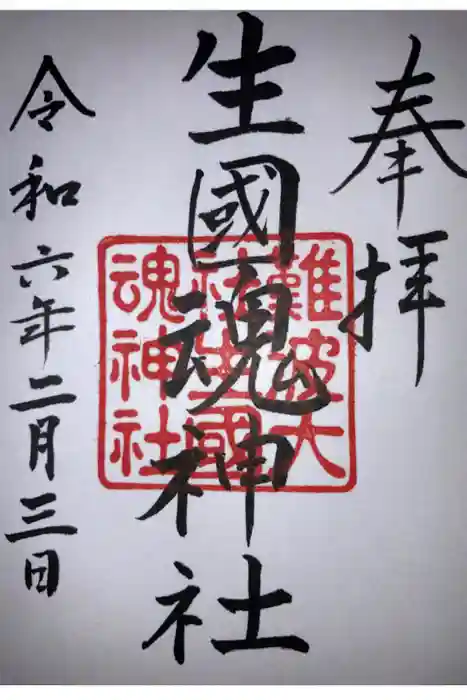 奉拝
生國魂神社
難波大
社生國
魂神社
令和六年二月三日